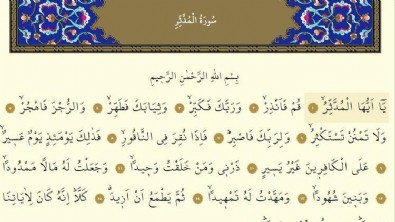 سُورَةُ الْمُدَّثِّرِ
بِسْمِ اللّٰهِ الرَّحْمٰنِ الرَّحِيمِ
يَٓا اَيُّهَا الْمُدَّثِّرُۙ ﴿١﴾ قُمْ فَاَنْذِرْۙ ﴿٢﴾ وَرَبَّكَ فَكَبِّرْۙ ﴿٣﴾ وَثِيَابَكَ فَطَهِّرْۙ ﴿٤﴾ وَالرُّجْزَ فَاهْجُرْۙ ﴿٥﴾
وَلَا تَمْنُنْ تَسْتَكْثِرُۙ ﴿٦﴾ وَلِرَبِّكَ فَاصْبِرْۜ ﴿٧﴾ فَاِذَا نُقِرَ فِي النَّاقُورِۙ ﴿٨﴾ فَذٰلِكَ يَوْمَئِذٍ يَوْمٌ عَسِيرٌۙ ﴿٩﴾
عَلَى الْكَافِرِينَ غَيْرُ يَسِيرٍ ﴿١٠﴾ ذَرْنِي وَمَنْ خَلَقْتُ وَحِيداًۙ ﴿١١﴾ وَجَعَلْتُ لَهُ مَالاً مَمْدُوداًۙ ﴿١٢﴾
وَبَنِينَ شُهُوداًۙ ﴿١٣﴾ وَمَهَّدْتُ لَهُ تَمْهِيداًۙ ﴿١٤﴾ ثُمَّ يَطْمَعُ اَنْ اَزِيدَۗ ﴿١٥﴾ كَلَّاۜ اِنَّهُ كَانَ لِاٰيَاتِنَا